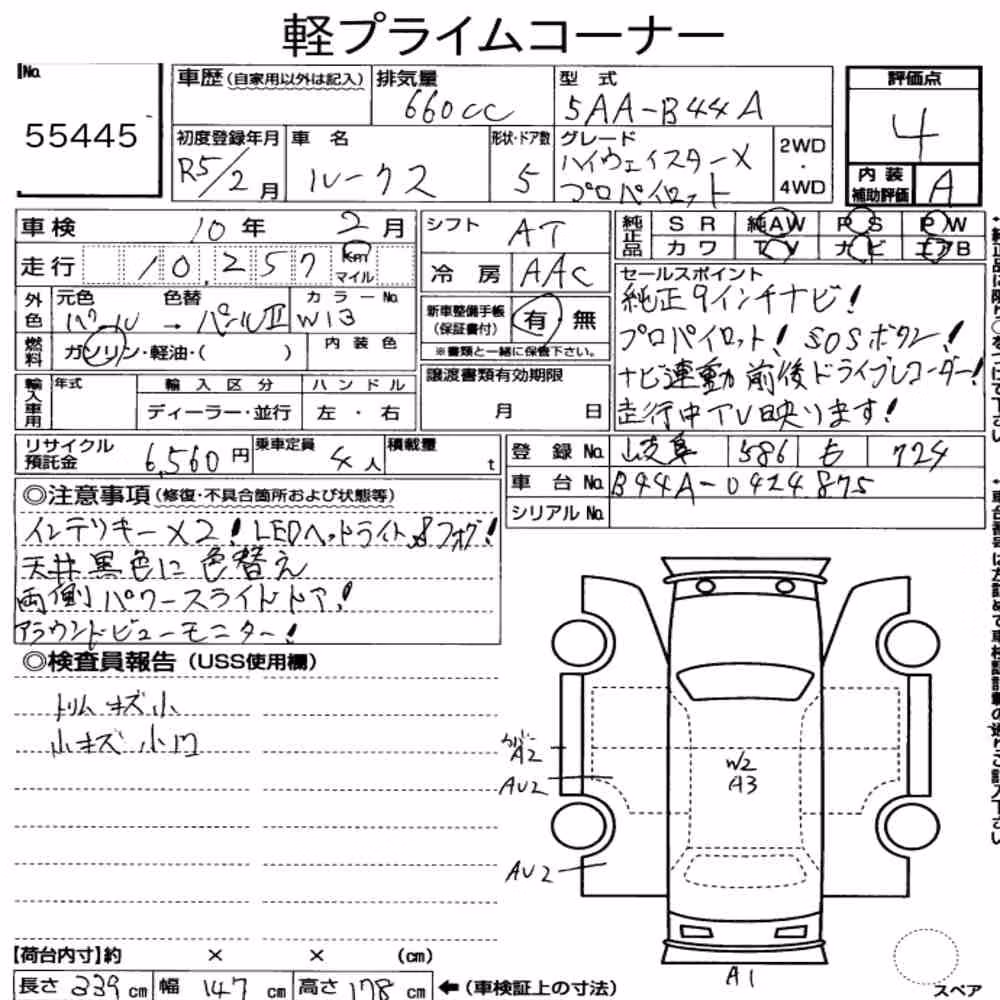 軽プライムコーナー
No.
55445
車歴（自家用以外は記入）
排気量
660cc
型 式
5AA-B44A
評価点
4
初度登録年月
R5/2月
車 名
ルークス
形状・ドア数
5
グレード
ハイウェイスターX
プロパイロット
2WD
・
4WD
内 装
補助評価
A
車検
10年 2月
シフト
AT
純正品
S R 純AW P S P W
カ ワ T V ナ ビ エアB
走行
10,257
Km
マイル
冷 房
AAC
セールスポイント
純正9インチナビ!
プロパイロット! SOSボタン!
ナビ連動 前後ドライブレコーダー!
走行中TV映ります!
外色
元色 色替 カラーNo.
パール → パールIII W13
新車整備手帳
（保証書付）
有 無
※書類と一緒に保管下さい。
燃料
ガソリン・軽油・（ ）
内 装 色
譲渡書類有効期限
月 日
輸入車用
年式
輸 入 区 分
ハ ン ド ル
ディーラー・並行
左 ・ 右
リサイクル
預託金
6,560円
乗車定員
4人
積載量
t
登 録 No.
岐阜 586 も 724
車 台 No.
B44A-0424875
シリアル No.
◎注意事項（修復・不具合箇所および状態等）
インテリキーX2! LEDヘッドライト&フォグ!
天井黒色に色替え
両側パワースライドドア!
アラウンドビューモニター!
◎検査員報告（USS使用欄）
トリムキズ小
小キズ小凹
カバー
A2
AU2
W2
A3
AU2
A1
【荷台内寸】約 × × （cm）
長さ 339 cm 幅 147 cm 高さ 178 cm ←（車検証上の寸法）
スペア